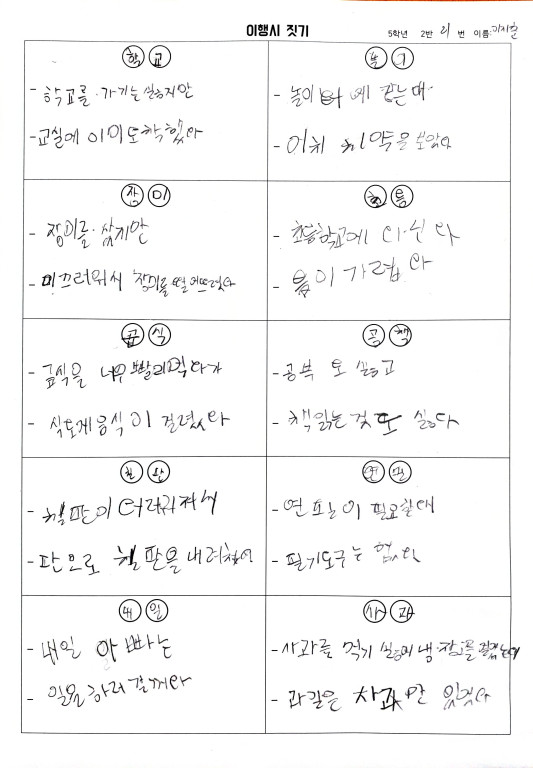 이행시 짓기
5학년 2반 번 이름:
학 교
- 학교를 가기는 싫지만
- 교실에 이미 도착했다
- 놀이 에 갔는데
- 어치 을 보았다
장 미
- 장미를 샀지만
- 미끄러워서 장미를 떨어뜨렸다
- 초등학교에 다닌다
- 등이 가렵다
급 식
- 급식을 너무 빨리먹다가
- 식도에 음식이 걸렸다
공 책
- 공부 도 싫고
- 책읽는것도 싫다
칠 판
- 칠판이 더러워져서
- 판으로 칠판을 내려쳤어
연 필
- 연필이 필요할때
- 필기도구는 없다
내 일
- 내일 아빠는
- 일을하러 갈꺼다
사 과
- 사과를 먹기 싫어 냉장고를 는데
- 과일은 사과만 있었다